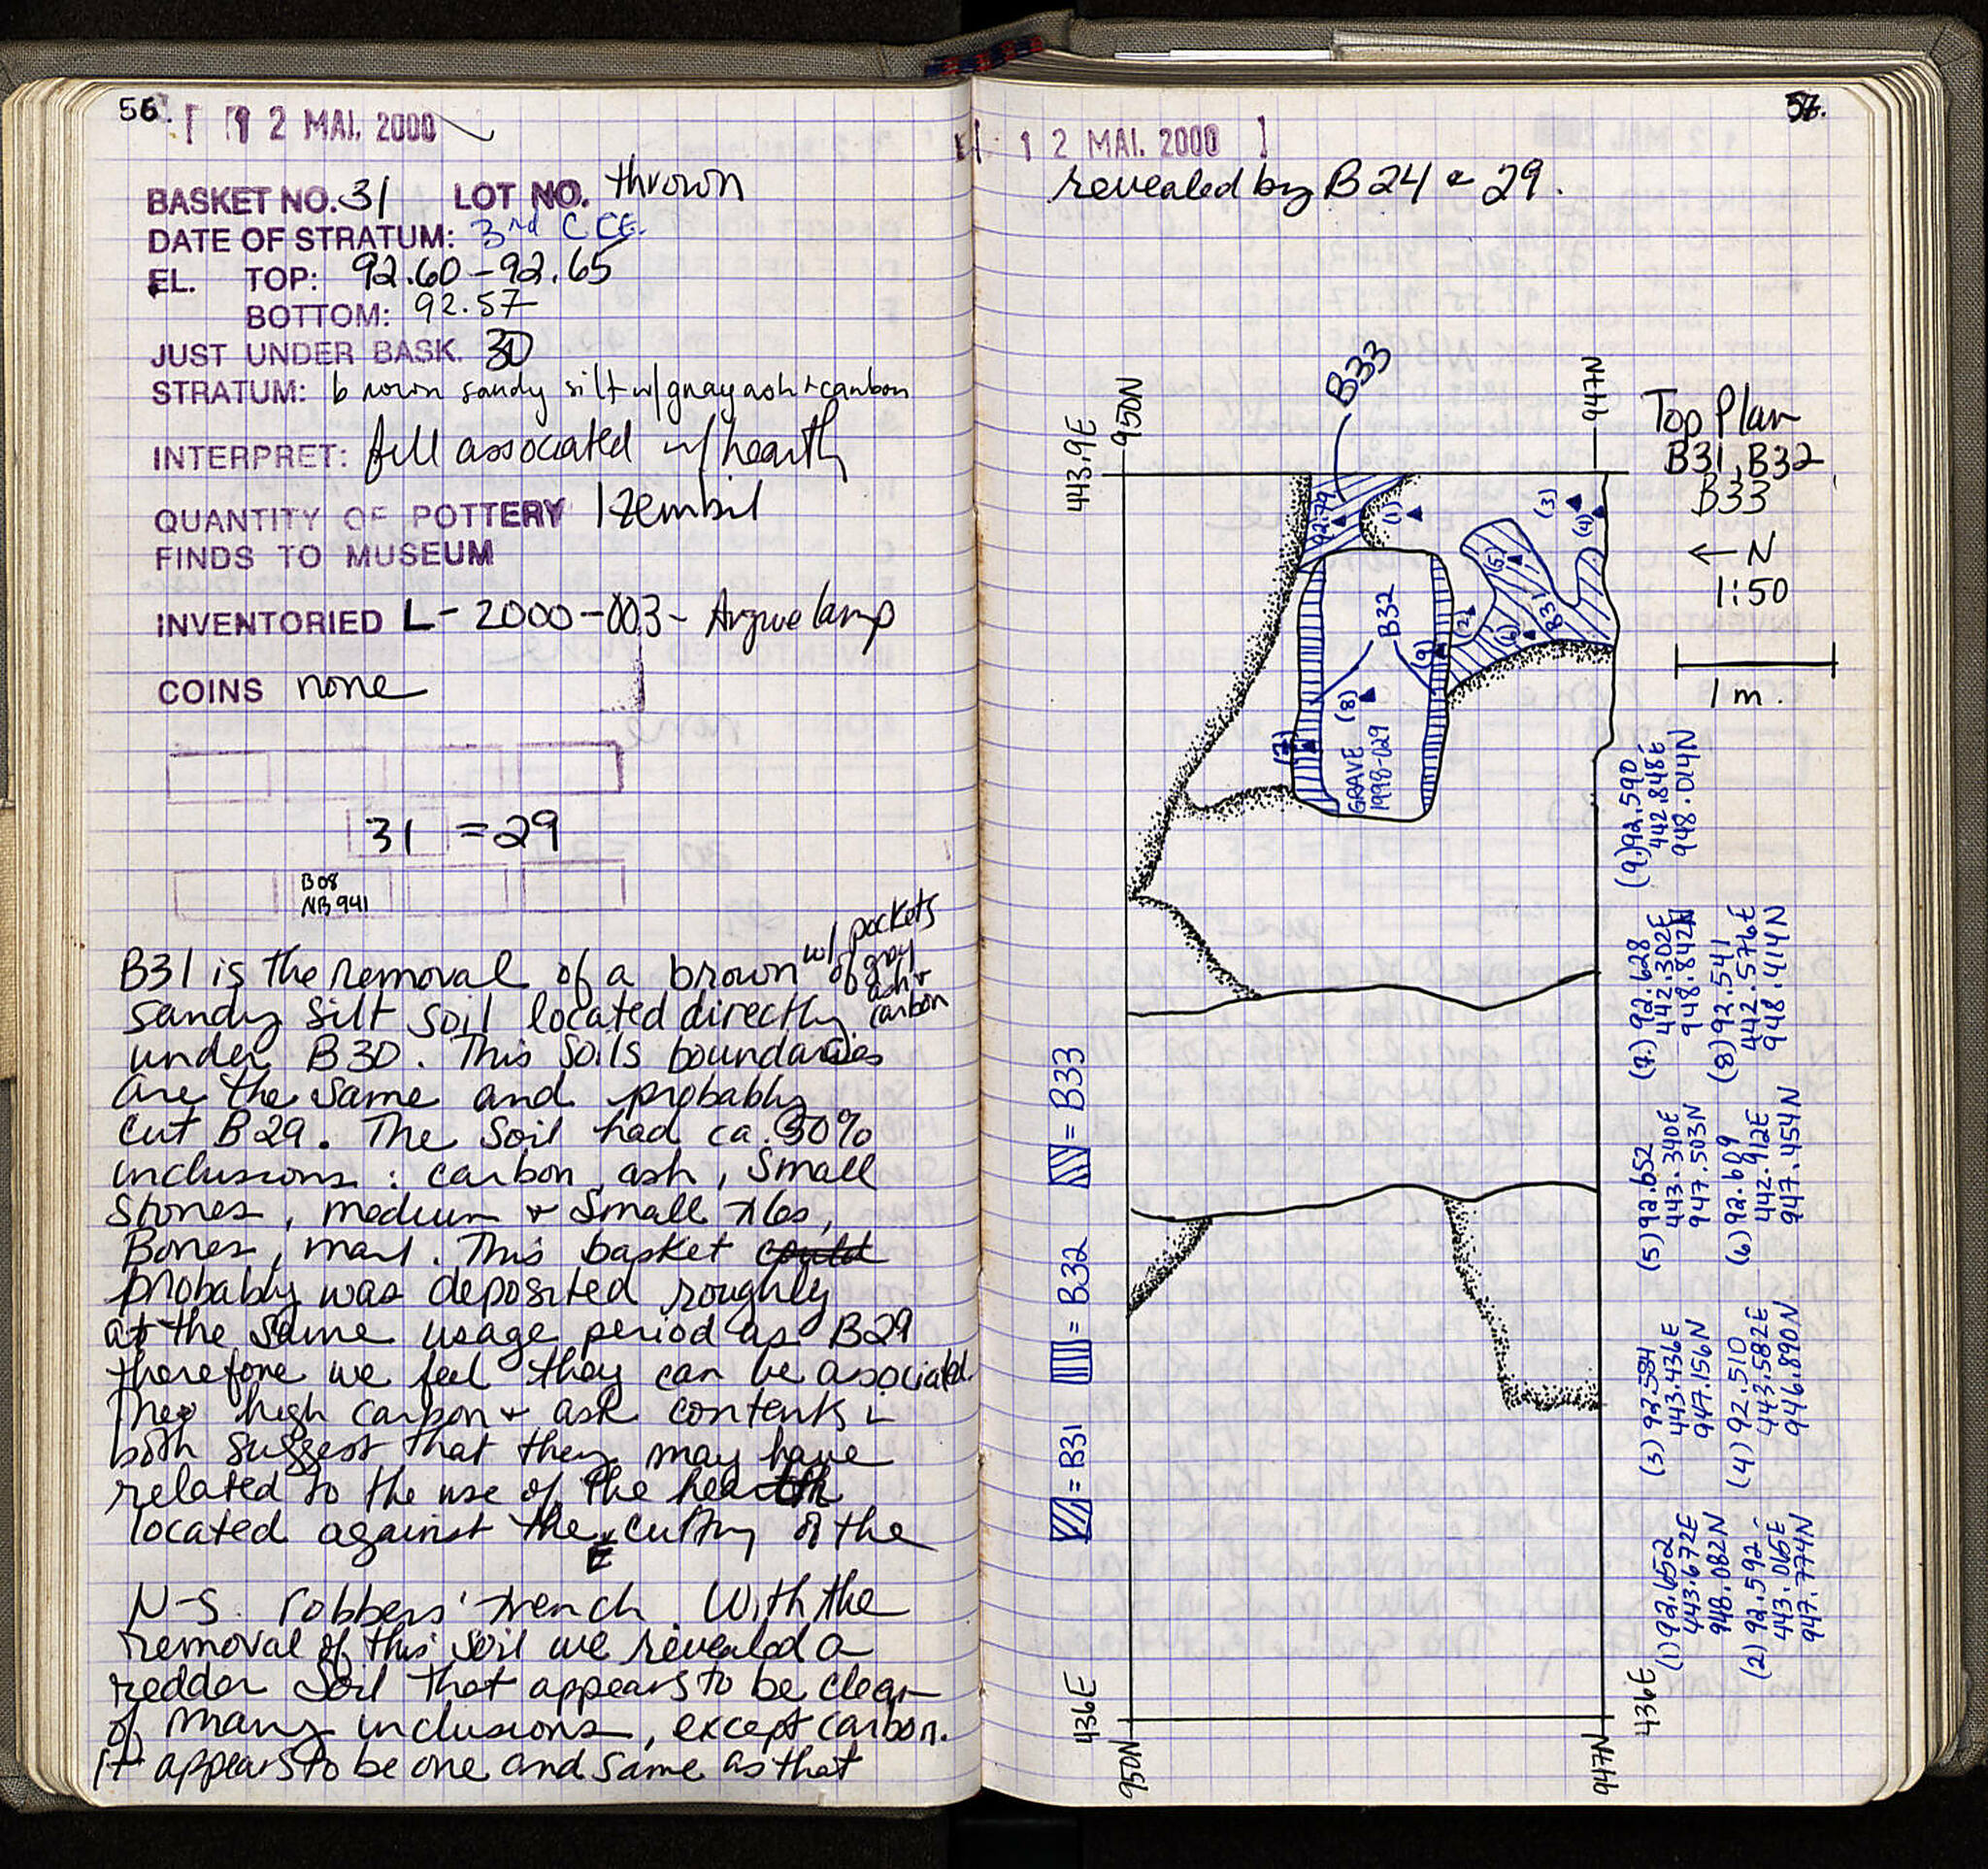 56.
12 MAI. 2000
BASKET NO. 31 LOT NO. thrown
DATE OF STRATUM: 3rd C CE
EL. TOP: 92.60-92.65
BOTTOM: 92.57
JUST UNDER BASK. 30
STRATUM: brown sandy silt w/gray ash+carbon
INTERPRET: fill associated w/hearth
QUANTITY OF POTTERY 1 zembil
FINDS TO MUSEUM
INVENTORIED L-2000-003- Argive lamp
COINS none
31 =29
B08
NB 941
B31 is the removal of a brown w/ pockets of gray ash + carbon
sandy silt soil located directly
under B30. This soils boundaries
are the same and probably
cut B29. The soil had ca. 30%
inclusions: carbon, ash, small
stones, medium + small tiles,
Bones, marl. This basket could
probably was deposited roughly
at the same usage period as B29
therefore we feel they can be associated.
The high carbon + ash contents in
both suggest that they may have
related to the use of the hearth
located against the E cutting of the
N-S robbers' trench. With the
removal of this soil we revealed a
redder soil that appears to be clear
of many inclusions, except carbon.
It appears to be one and same as that
57.
12 MAI. 2000
revealed by B24 & 29.
Top Plan
B31, B32
B33
← N
1:50
1 m.
443.9E
950N
947N
B33
92.79
(1)
(3)
(4)
(5)
B32
(2)
(6)
B31
(9)
(8)
(7)
GRAVE
1998-029
= B33
= B32
= B31
436E
950N
947N
436E
(1) 92.652
443.672E
948.082N
(2) 92.592
443.065E
947.774N
(3) 92.584
443.436E
947.156N
(4) 92.510
443.582E
946.890N
(5) 92.652
443.340E
947.503N
(6) 92.609
442.912E
947.454N
(7.) 92.628
442.302E
948.842N
(8) 92.541
442.576E
948.414N
(9.) 92.590
442.848E
948.014N